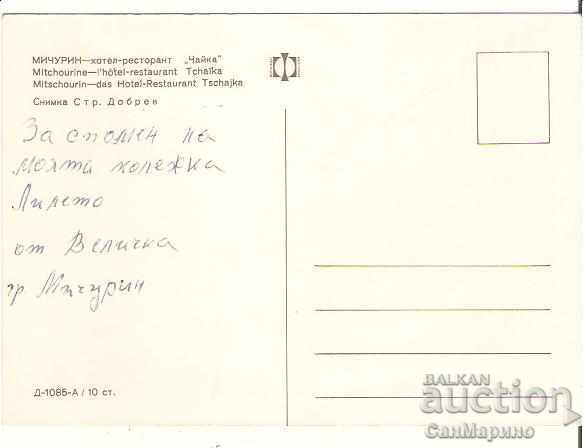 МИЧУРИН—хотел-ресторант „Чайка"
Mitchourine—l'hôtel-restaurant Tchaïka
Mitschourin—das Hotel-Restaurant Tschajka
Снимка Стр. Добрев
За спомен на
моята колежка
Лилето
от Величка
гр Мичурин
Д-1085-А / 10 ст.
BALKAN
auction
СанМарино